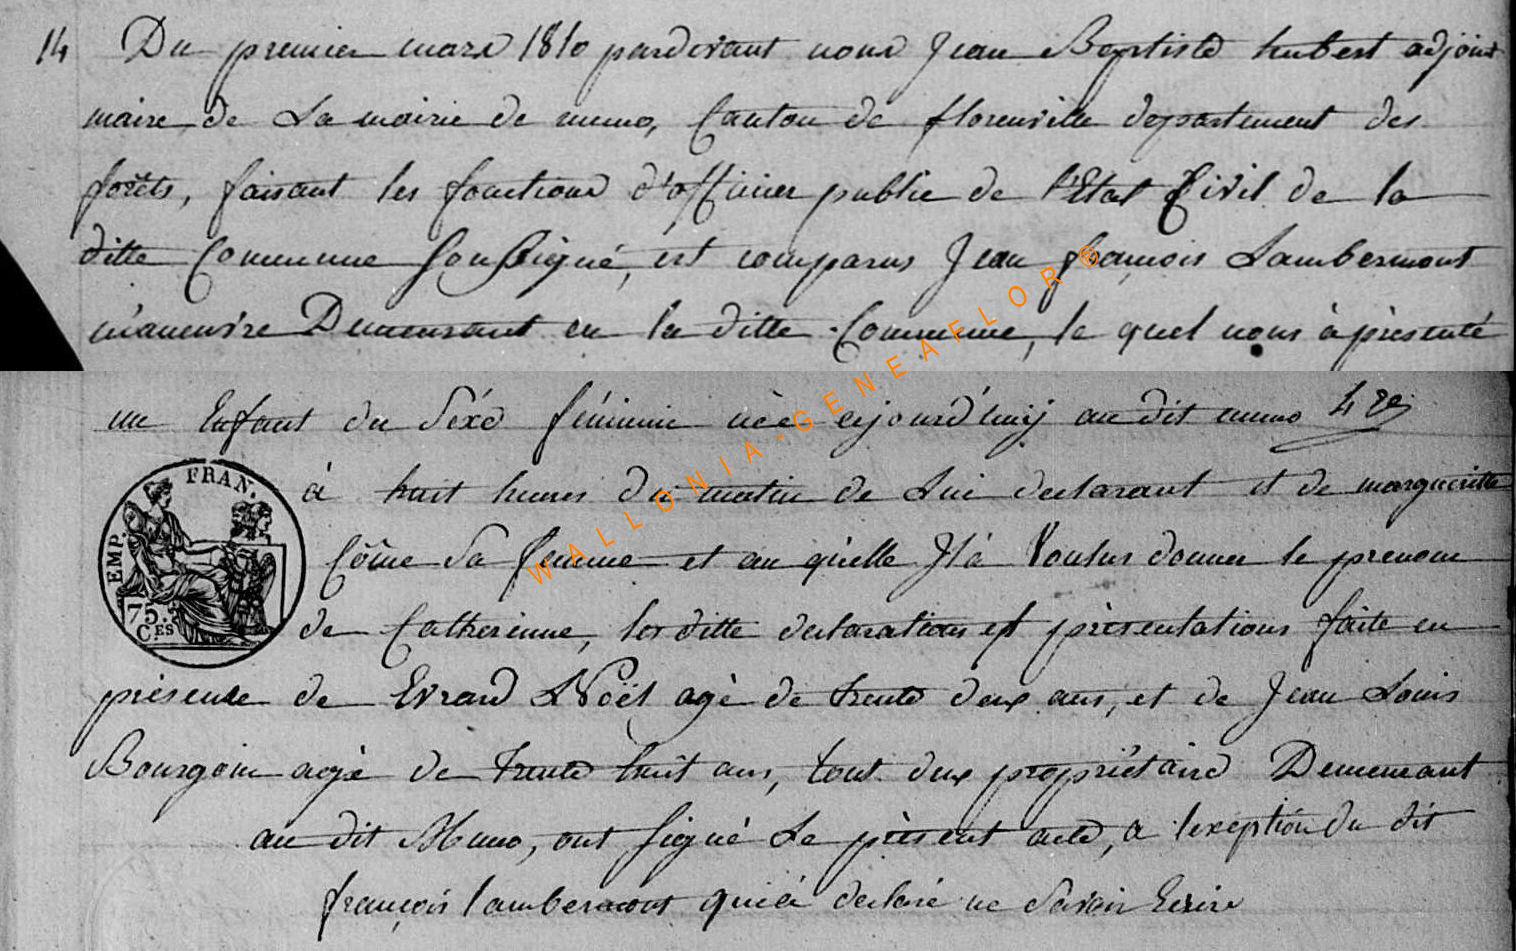 14 Du premier mars 1810 pardevant nous Jean Baptiste hubert adjoint
maire de La mairie de muno, Canton de florenville departement des
forêts, faisant les fonctions d'officier public de l'Etat Civil de la
ditte Commune Soussigné, est comparus Jean françois Lambermont
maneuvre Demeurant en la ditte Commune, le quel nous à présenté
un Enfant du Séxe féminin nèe ejourd'huij au dit muno
à huit heures du matin de Lui declarant et de margueritte
Côme Sa femme et au quelle Il à Voulus donner le prenom
de Catherinne, les ditte declarations et présentations faite en
présence de Evrard Noël agé de trente deux ans, et de Jean Louis
Bourgoin agé de trente huit ans, tout deux propriétaire Demeurant
au dit Muno, ont signé Le présent acte, a l'exéption du dit
françois lambermont qui à declaré ne Savoir Ecrire
FRAN.
EMP.
75. CES
WALLONIA-GENEAFLOR©